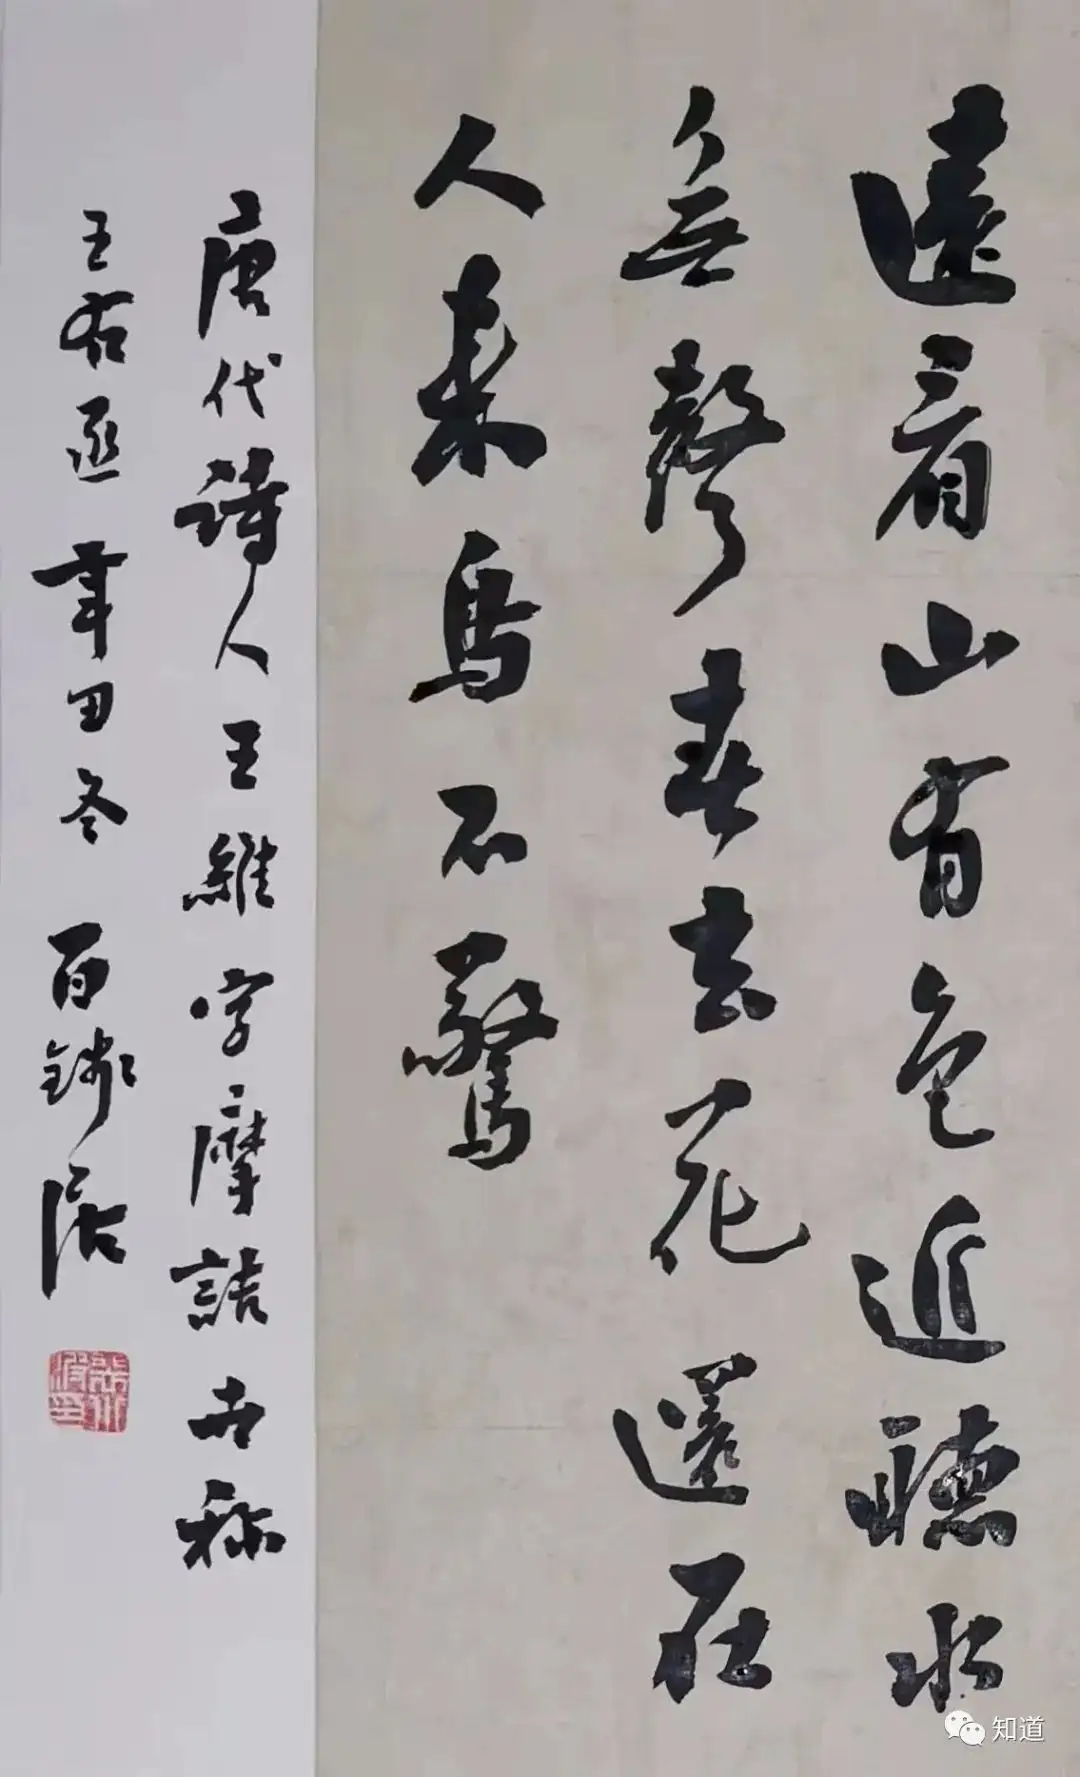 遠看山有色近聽水
無聲春去花還在
人來鳥不驚
唐代詩人王維字摩詰世称
王右丞 辛丑冬 百鍊居
知道